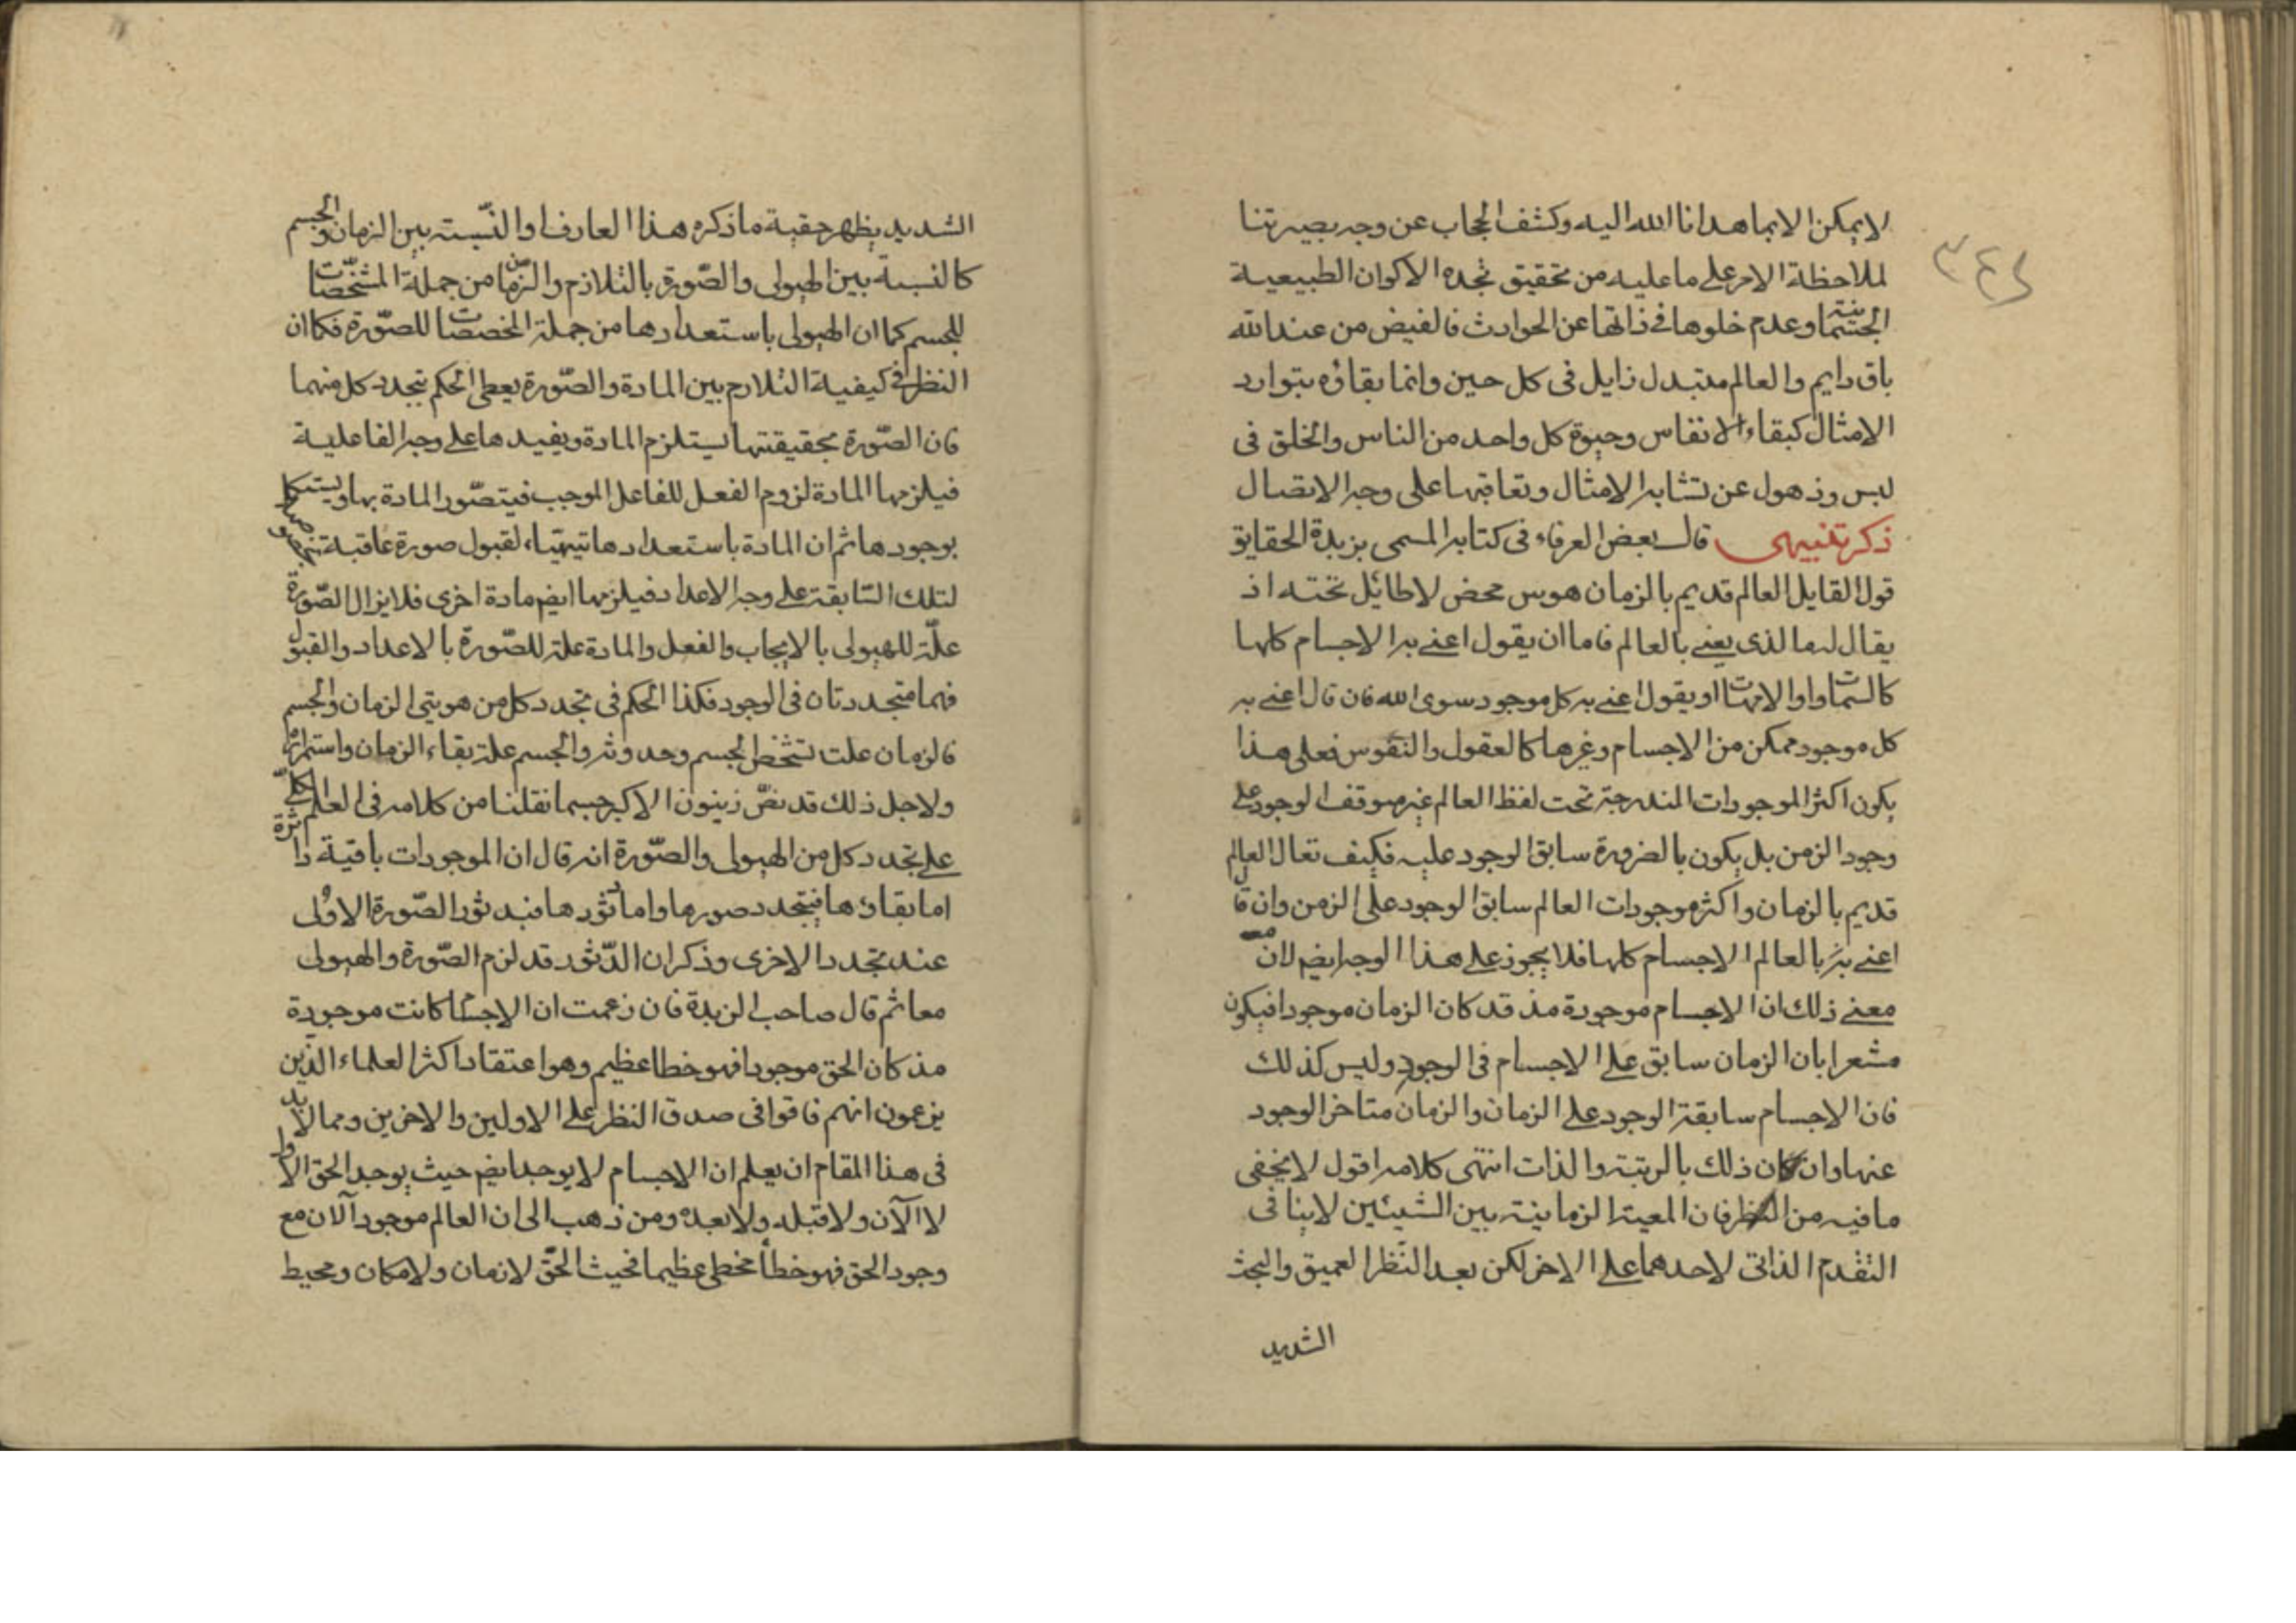 لا يمكن الا بما هدانا الله اليه وكشف الحجاب عن وجه بصيرتنا
لملاحظة الامر على ما عليه من تحقيق تجدد الاكوان الطبيعية
الجسمانية وعدم خلوها فى ذاتها عن الحوادث فالفيض من عند الله
باق دايم والعالم متبدل زايل فى كل حين وانما بقاؤه بتوارد
الامثال كبقاء الانفاس وحيوة كل واحد من الناس والخلق فى
لبس وذهول عن تشابه الامثال وتعاقبها على وجه الاتصال
ذكر تنبيهى قال بعض العرفاء فى كتابه المسمى بزبدة الحقايق
قول القايل العالم قديم بالزمان هوس محض لا طائل تحته اذ
يقال له ما الذى يعنى بالعالم فاما ان يقول اعنى به الاجسام كلها
كالسماوات والامهات او يقول اعنى به كل موجود سوى الله فان قال اعنى به
كل موجود ممكن من الاجسام وغيرها كالعقول والنفوس فعلى هذا
يكون اكثر الموجودات المندرجة تحت لفظ العالم غير موقف الوجود على
وجود الزمن بل يكون بالضرورة سابق الوجود عليه فكيف تعال العالم
قديم بالزمان واكثر موجودات العالم سابق الوجود على الزمن وان قال
اعنى به بالعالم الاجسام كلها فلا يجوز على هذا الوجه ايضم لان
معنى ذلك ان الاجسام موجودة مذ قد كان الزمان موجودا فيكون
مشعرا بان الزمان سابق على الاجسام فى الوجود وليس كذلك
فان الاجسام سابقة الوجود على الزمان والزمان متاخر الوجود
عنها وان كان ذلك بالرتبة والذات انتهى كلامه اقول لا يخفى
ما فيه من النظر فان المعية الزمانية بين الشيئين لا ينافى
التقدم الذاتى لاحدهما على الاخر لكن بعد النظر العميق والبحث
الشديد
الشديد يظهر حقية ما ذكره هذا العارف اوا النسبة بين الزمان والجسم
كالنسبة بين الهيولى والصورة بالتلازم والزمان من جملة المشخصات
للجسم كما ان الهيولى باستعدادها من جملة المخصصات للصورة فكما ان
النظر فى كيفية التلازم بين المادة والصورة يعطى الحكم بتجدد كل منهما
فان الصورة بحقيقتها يستلزم المادة ويفيدها على وجه الفاعلية
فيلزمها المادة لزوم الفعل للفاعل الموجب فيتصور المادة بها ويستكمل
بوجودها ثم ان المادة باستعدادها تيهيّاء لقبول صورة عاقبة
لتلك السابقة على وجه الاعداد فيلزمها ايضم مادة اخرى فلا يزال الصورة
علة للهيولى بالايجاب والفعل والمادة علة للصورة بالاعداد والقبول
فهما متجددتان فى الوجود فكذا الحكم فى تجدد كل من هويتى الزمان والجسم
فالزمان علت تشخص الجسم وحدوثه والجسم علة بقاء الزمان واستمراره
ولاجل ذلك قد نص زينون الاكبر حسبما نقلنا من كلامه فى العلم الكلى
على تجدد كل من الهيولى والصورة انه قال ان الموجودات باقية داثرة
اما بقاؤها فبتجدد صورها واما دثورها فبدثور الصورة الاولى
عند تجدد الاخرى وذكر ان الدثور قد لزم الصورة والهيولى
معا ثم قال صاحب الزبدة فان زعمت ان الاجسام كانت موجودة
مذ كان الحق موجودا فهو خطا عظيم وهو اعتقاد اكثر العلماء الذين
يزعمون انهم فاقوا فى صدق النظر على الاولين والاخرين ومما لا بد
فى هذا المقام ان يعلم ان الاجسام لا يوجد ايضم حيث يوجد الحق الاول
لا الآن ولا قبله ولا بعده ومن ذهب الى ان العالم موجود الآن مع
وجود الحق فهو خطأ مخطى عظيما فحيث الحق لا زمان ولا مكان ومحيط